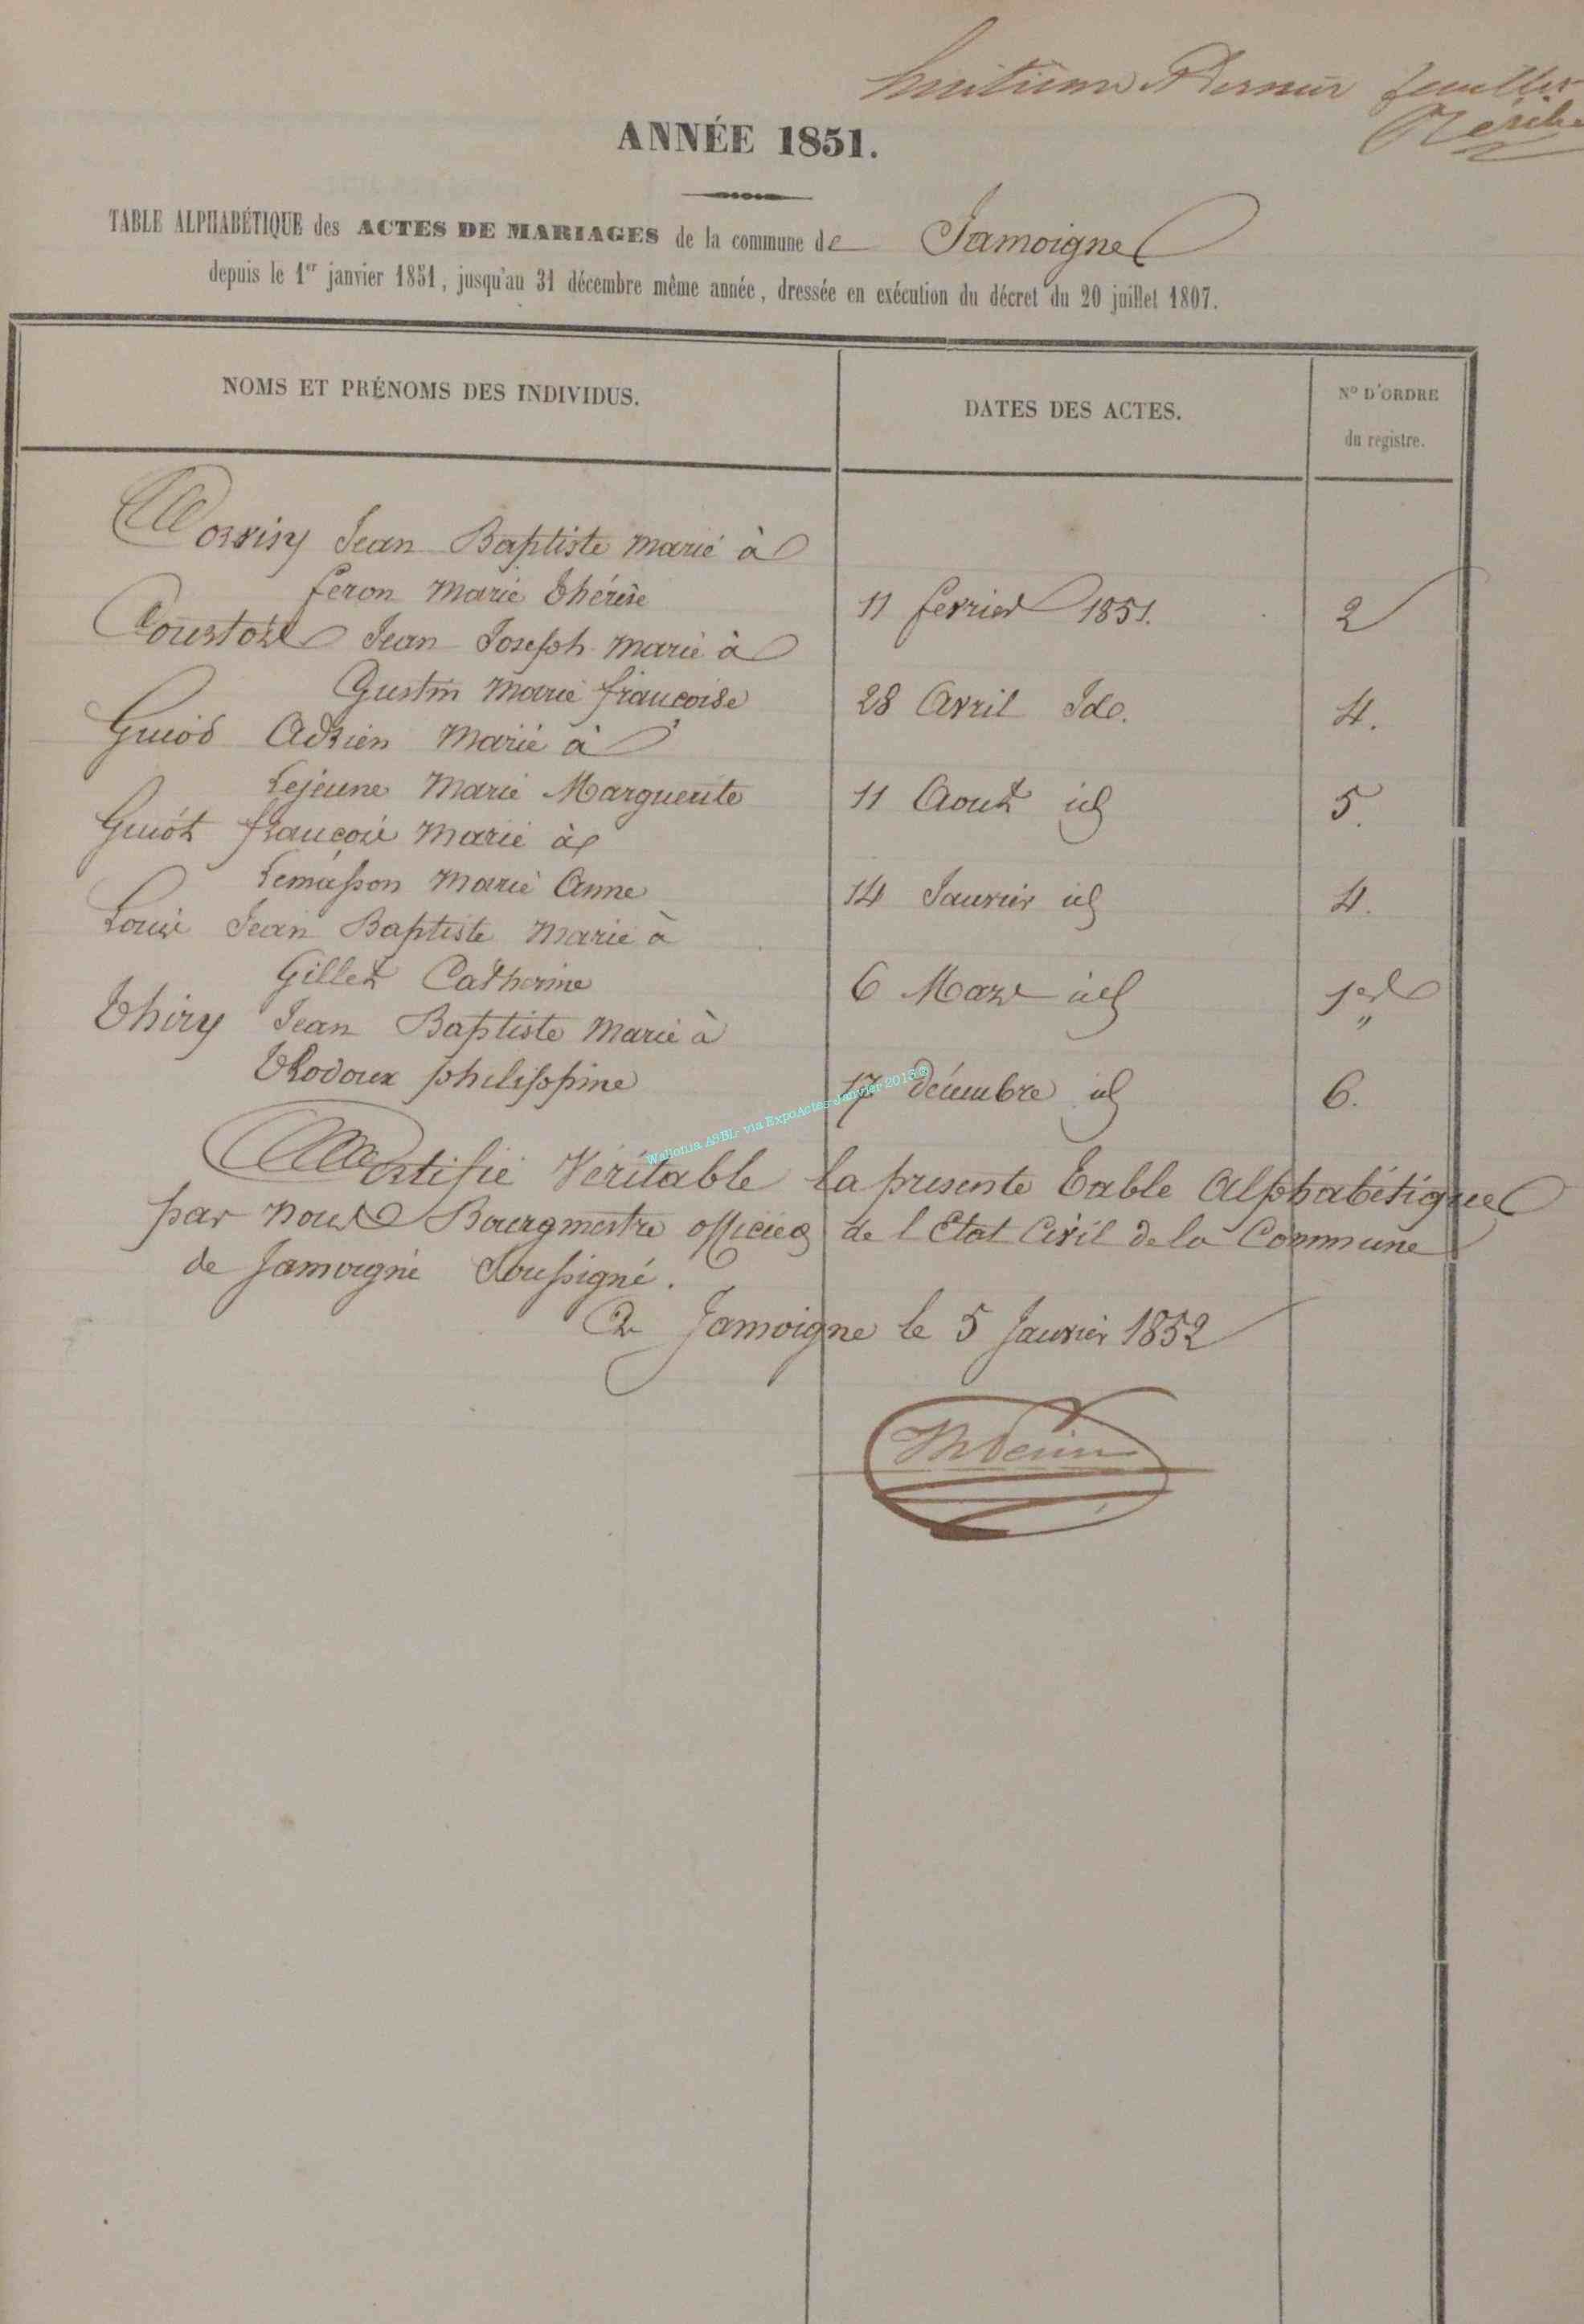 huitième & dernier feuillet
ANNÉE 1851.
TABLE ALPHABÉTIQUE des ACTES DE MARIAGES de la commune de Jamoigne
depuis le 1er janvier 1851, jusqu'au 31 décembre même année, dressée en exécution du décret du 20 juillet 1807.
NOMS ET PRÉNOMS DES INDIVIDUS.
DATES DES ACTES.
No D'ORDRE
du registre.
Jean Baptiste marié à
feron marie thérèse 11 fevrier 1851. 2
Jean Joseph marié à
Gustin marie françoise 28 Avril Id. 4.
Guiod Adrien marié à
Lejeune Marie Marguerite 11 Aout id 5.
Guiot françois marié à
Lemasson marie Anne 14 Janvier id 4.
Louis Jean Baptiste marié à
Gillet Catherine 6 Mars id 1er
"
Thiry Jean Baptiste Marié à
philippine 17 décembre id 6.
Wallonia ASBL- via ExpoActes-Janvier 2013®
Certifié Véritable la présente table Alphabétique
par nous Bourgmestre officier de l Etat Civil de la Commune
de Jamoigne Soussigné.
A Jamoigne le 5 Janvier 1852